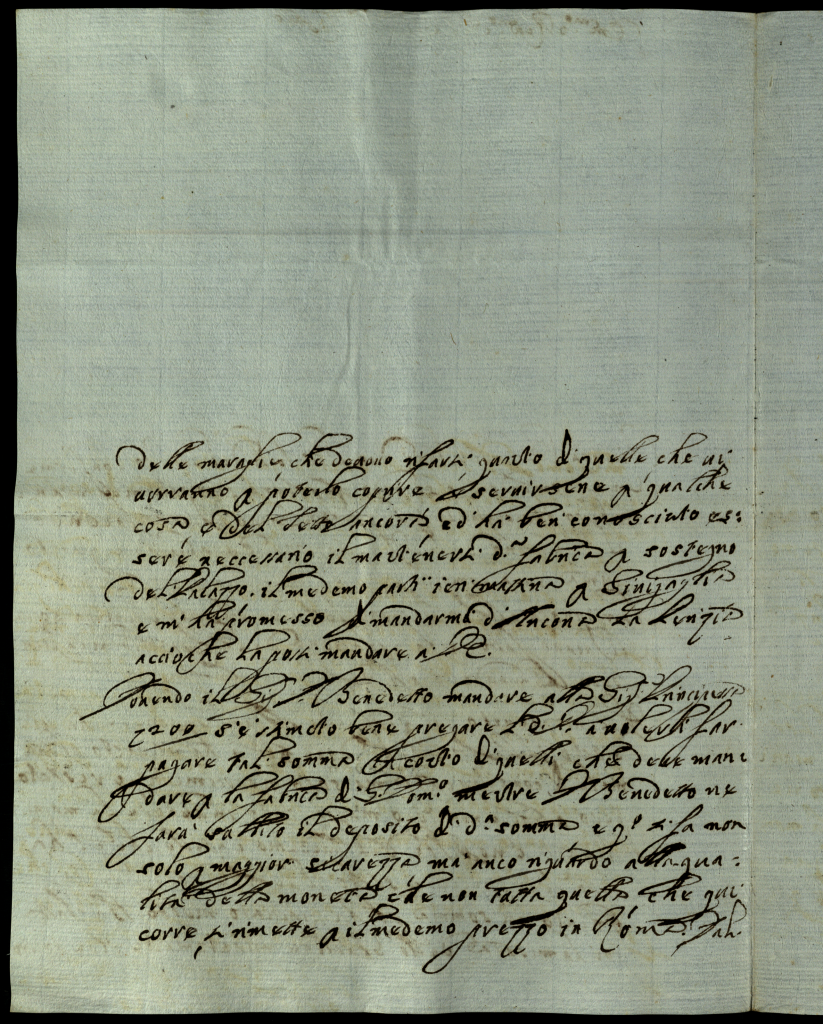 delle maraglie che deono rifarsi quanto di quelle che vi
vorranno p poterlo coprire e servirsene p qualche
cosa e del tetto ancora ed ha ben conosciuto es:
sere neccessario il mantenersi d.ª fabrica p sostegno
del Palazzo. il medemo parti ieri mattina p Sinigaglia
e mi ha promesso di mandarmi d'Ancona la
accioche la possi mandare a
il Sig. D Benedetto mandare alla Sig.ª Principessa
1200 s'è stimato bene pregare a volerli far
pagare tal somma a conto di quelli che deve man:
dare p la fabrica di S. Dom.º mentre D Benedetto ne
farà subbito il deposito di d.ª somma e q.º si fa non
solo p maggior sicurezza ma anco riguardo alla qua:
lità della moneta che non tutta quella che qui
corre si rimette p il medemo prezzo in Roma. Dal